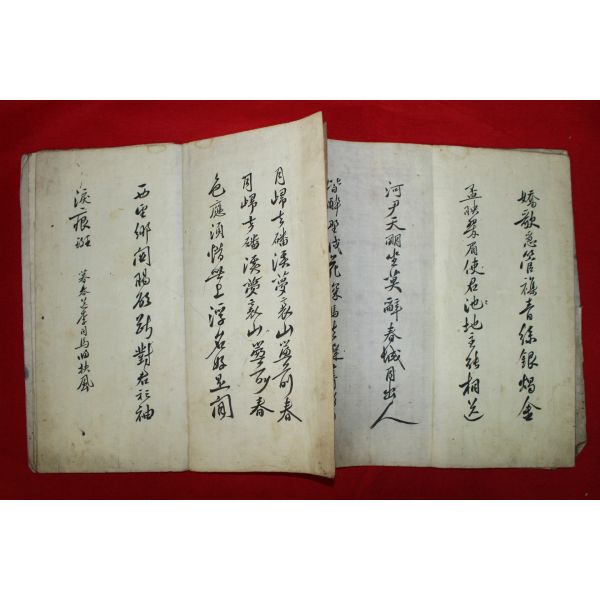 嬌歌急管雜青絲銀燭金
盃映翠眉使君池地主能相送
河尹天明坐莫辭春城月出人
皆醉野戍花深馬去遲
月歸去磻溪夢裏山簾前春
月歸去磻溪夢裏山簾前春
色應須惜世上浮名好是閑
西望鄉關腸欲斷對君衫袖
淚痕斑 暮春送李司馬歸扶風